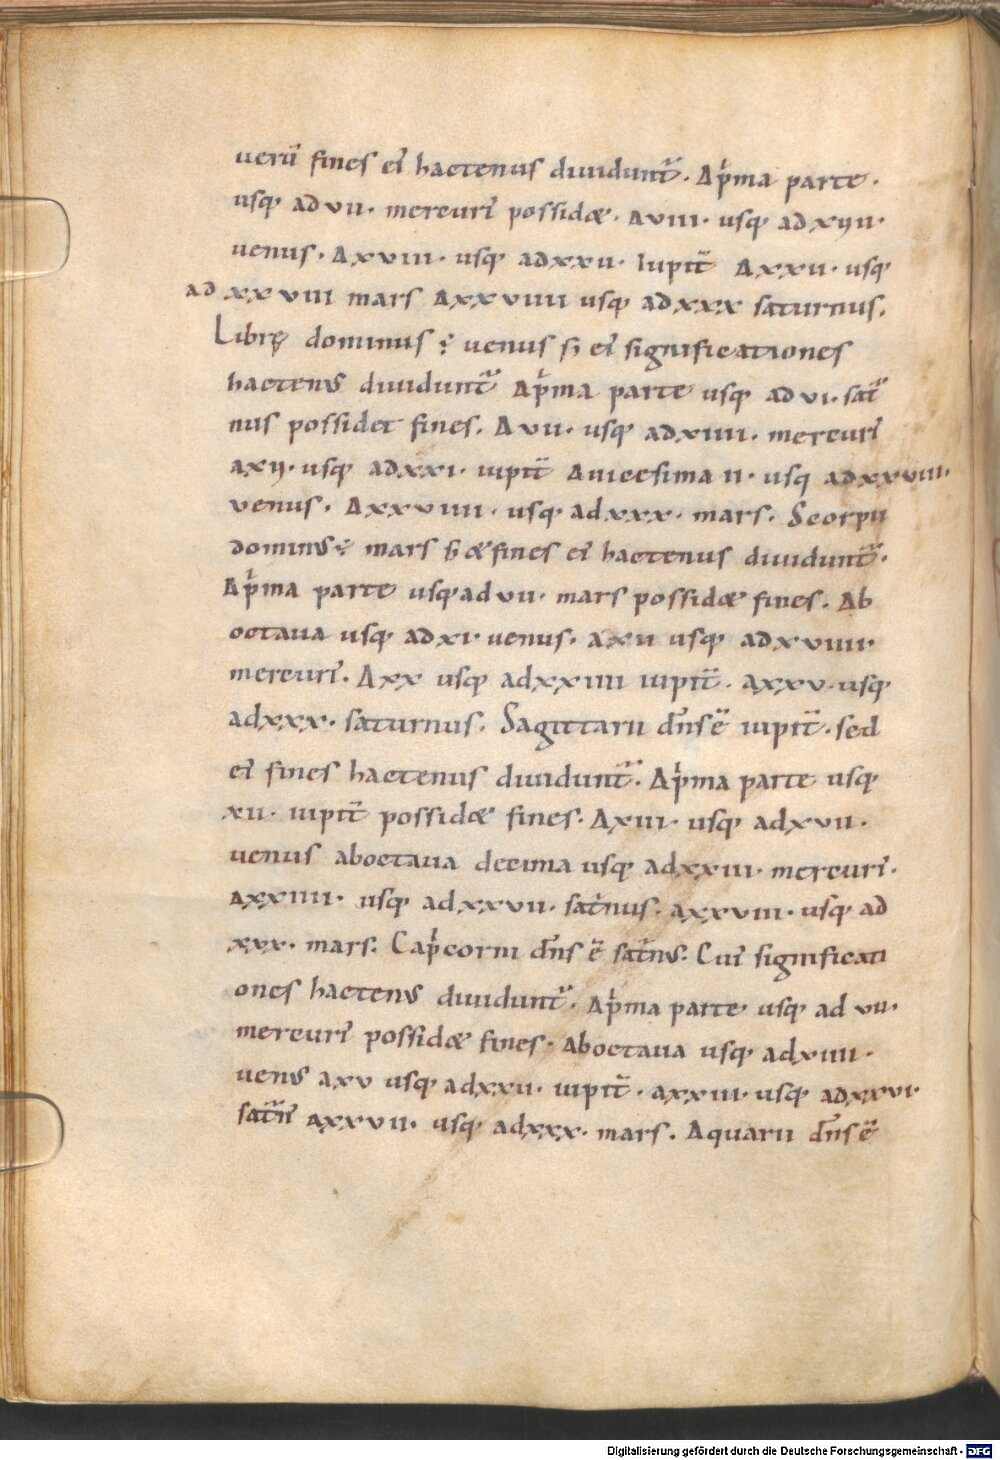 uerū fines ei hactenus diuidunt̄. Ap̍ma parte.
usq; ad vii. mercuri possidæ. A viii. usq; ad xiiii.
uenus. A xviii. usq; ad xxii. Iupit̄ A xxii. usq;
ad xxviii mars A xxviiii usq; ad xxx saturnus.
Librę dominus ÷ uenus s; ei significationes
hactenus diuidunt̄ Ap̍ma parte usq; ad vi. sat̄
nus possidet fines. A vii. usq; ad xiiii. mercuri
a xv. usq; ad xxi. iupit̄ A uicesima ii. usq; ad xxviii.
venus. A xxviiii. usq; ad xxx. mars. Scorpii
dominus ÷ mars s; & fines ei hactenus diuidunt̄.
Ap̍ma parte usq; ad vii. mars possidæ fines. Ab
octaua usq; ad xi. uenus. a xii usq; ad xviiii.
mercuri. A xx usq; ad xxiiii iupit̄. a xxv. usq;
ad xxx. saturnus. Sagittarii dn̄s ē iupit̄. sed
ei fines hactenus diuidunt̄. Ap̍ma parte usq;
xii. iupit̄ possidæ fines. A xiii. usq; ad xvii.
uenus ab octaua decima usq; ad xxiii. mercuri.
A xxiiii. usq; ad xxvii. sat̄nus. a xxviii. usq; ad
xxx. mars. Cap̍corni dn̄s ē sat̄nus. Cui significati
ones hactenus diuidunt̄. Ap̍ma parte usq; ad vii.
mercuri possidæ fines. Ab octaua usq; ad xiiii.
uenus a xv usq; ad xxii. iupit̄. a xxiii. usq; ad xxvi.
sat̄n A xxvii. usq; ad xxx. mars. Aquarii dn̄s ē
Digitalisierung gefördert durch die Deutsche Forschungsgemeinschaft - DFG